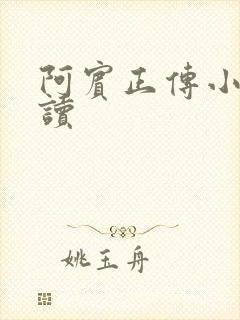 阿賓正傳小
讀
姚玉舟